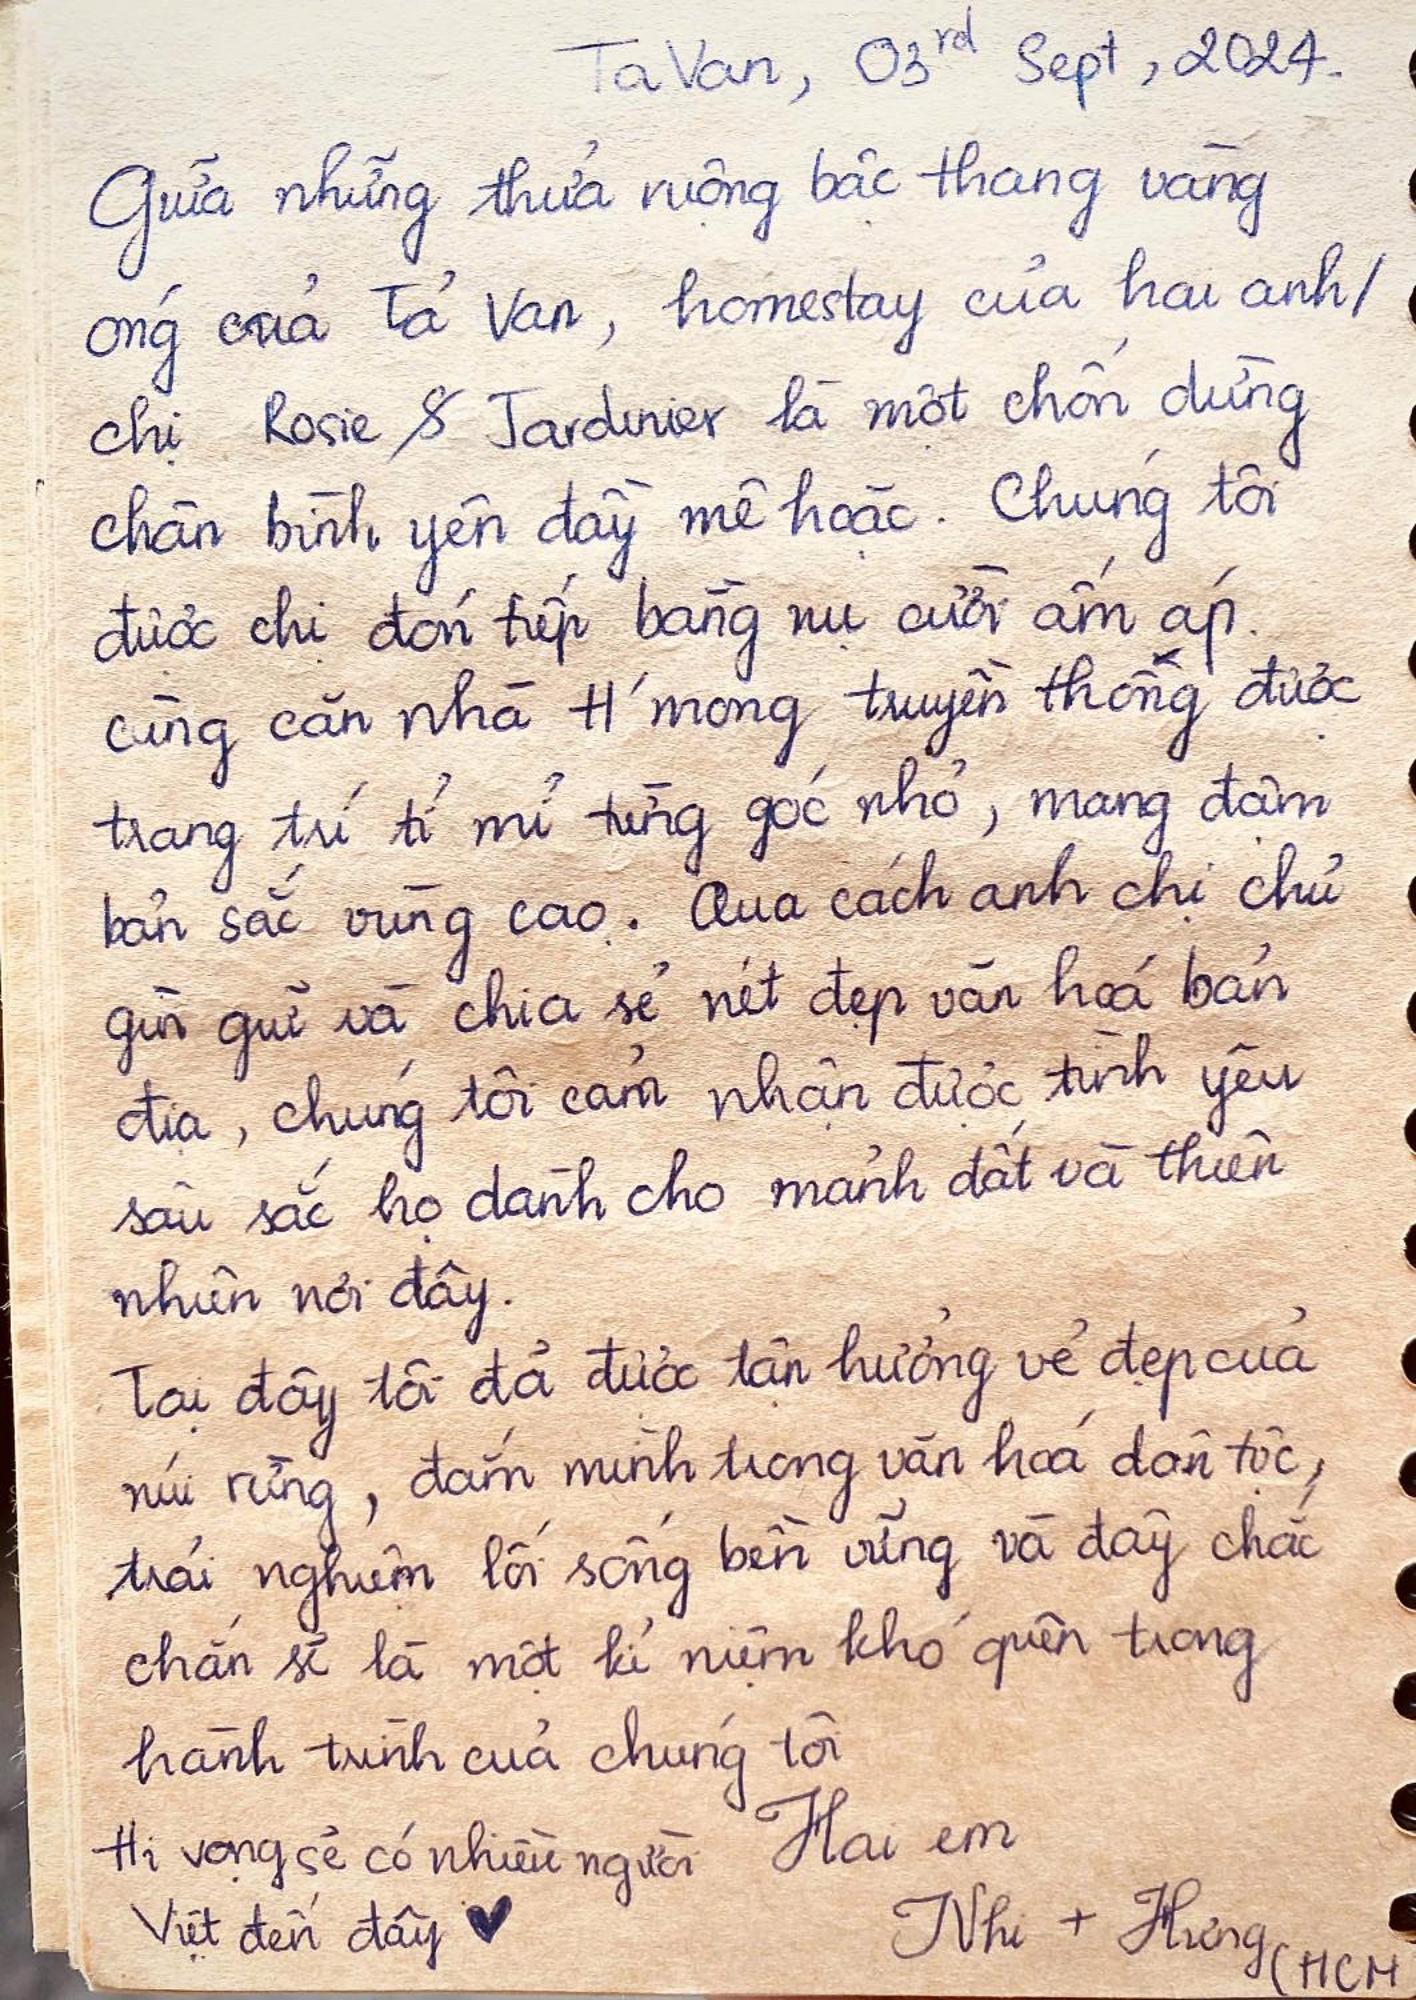 Ta Van, 03rd Sept, 2024.
Giữa những thửa ruộng bậc thang vàng
óng của Tả Van, homestay của hai anh/
chị Rosie & Jardinier là một chốn dừng
chân bình yên đầy mê hoặc. Chúng tôi
được chị đón tiếp bằng nụ cười ấm áp.
cùng căn nhà H'mong truyền thống được
trang trí tỉ mỉ từng góc nhỏ, mang đậm
bản sắc vùng cao. Qua cách anh chị chủ
gìn giữ và chia sẻ nét đẹp văn hoá bản
địa, chúng tôi cảm nhận được tình yêu
sâu sắc họ dành cho mảnh đất và thiên
nhiên nơi đây.
Tại đây tôi đã được tận hưởng vẻ đẹp của
núi rừng, đắm mình trong văn hoá dân tộc,
trải nghiệm lối sống bền vững và đây chắc
chắn sẽ là một kỉ niệm khó quên trong
hành trình của chúng tôi
Hi vọng sẽ có nhiều người
Việt đến đây ♥
Hai em
Nhi + Hưng (HCM